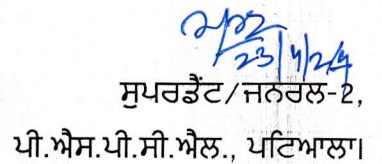 23/4/24
ਸੁਪਰਡੈਂਟ/ਜਨਰਲ-2,
ਪੀ.ਐਸ.ਪੀ.ਸੀ.ਐਲ., ਪਟਿਆਲਾ।